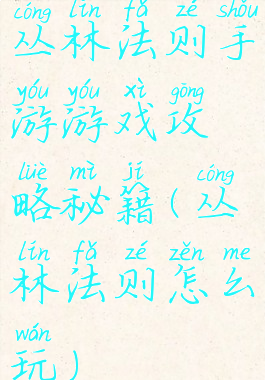 cóng lín fǎ zé shǒu
丛林法则手
yóu yóu xì gōng
游游戏攻
lüè mì jí cóng
略秘籍(丛
lín fǎ zé zěn me
林法则怎么
wán
玩)